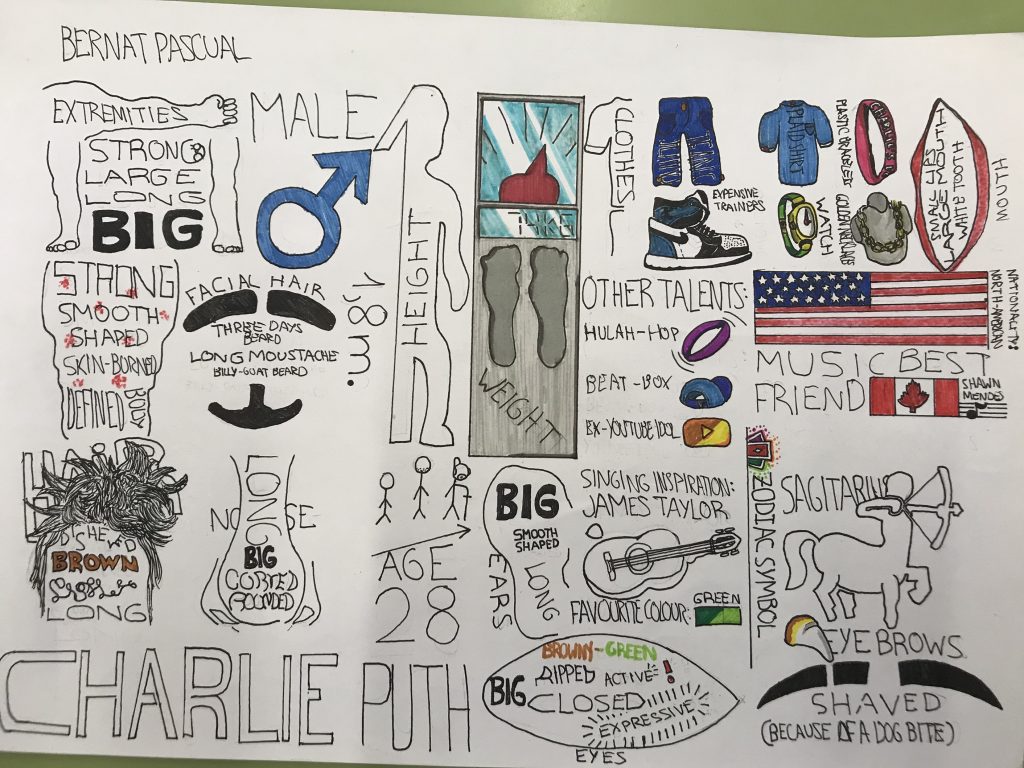 BERNAT PASCUAL
EXTREMITIES
STRONG
LARGE
LONG
BIG
MALE
HEIGHT
1,8 m.
WEIGHT
CLOTHES
PLAID SHIRT
EXPENSIVE
TRAINERS
WATCH
MOUTH
SMALL LIPS
LARGE MOUTH
WHITE TOOTH
STRONG
SMOOTH
SHAPED
SKIN-BORNED
DEFINED
BODY
FACIAL HAIR
THREE DAYS
BEARD
LONG MOUSTACHE
BILLY-GOAT BEARD
OTHER TALENTS:
HULAH-HOP
BEAT-BOX
EX-YOUTUBE IDOL
NATIONALITY:
MUSIC BEST
FRIEND
SHAWN
MENDES
HAIR
BROWN
LONG
NOSE
LONG
BIG
ROONDED
AGE
28
BIG
SMOOTH
SHAPED
LONG
EARS
SINGING INSPIRATION:
JAMES TAYLOR
FAVOURITE COLOUR:
GREEN
ZODIAC SYMBOL
SAGITARIUS
CHARLIE PUTH
BROWNY-GREEN
RIPPED ACTIVE!
BIG
CLOSED
EXPRESSIVE
EYES
EYEBROWS
SHAVED
(BECAUSE OF A DOG BITE)